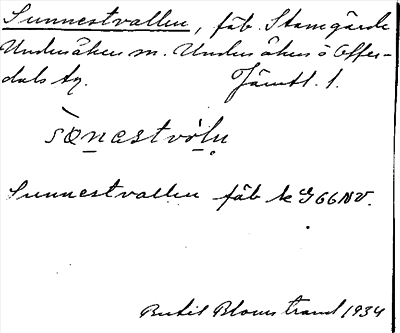 Sunnestvallen, fäb. Stamgärde
Undersåkers sn. Undersåkers o Offer-
dals tg. Jämtl. l.
sònestvòlņ
Sunnestvallen fäb k G66NV.
Bertil Blomstrand 1934